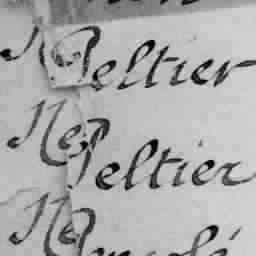 N Peltier
Ne Peltier
Ne